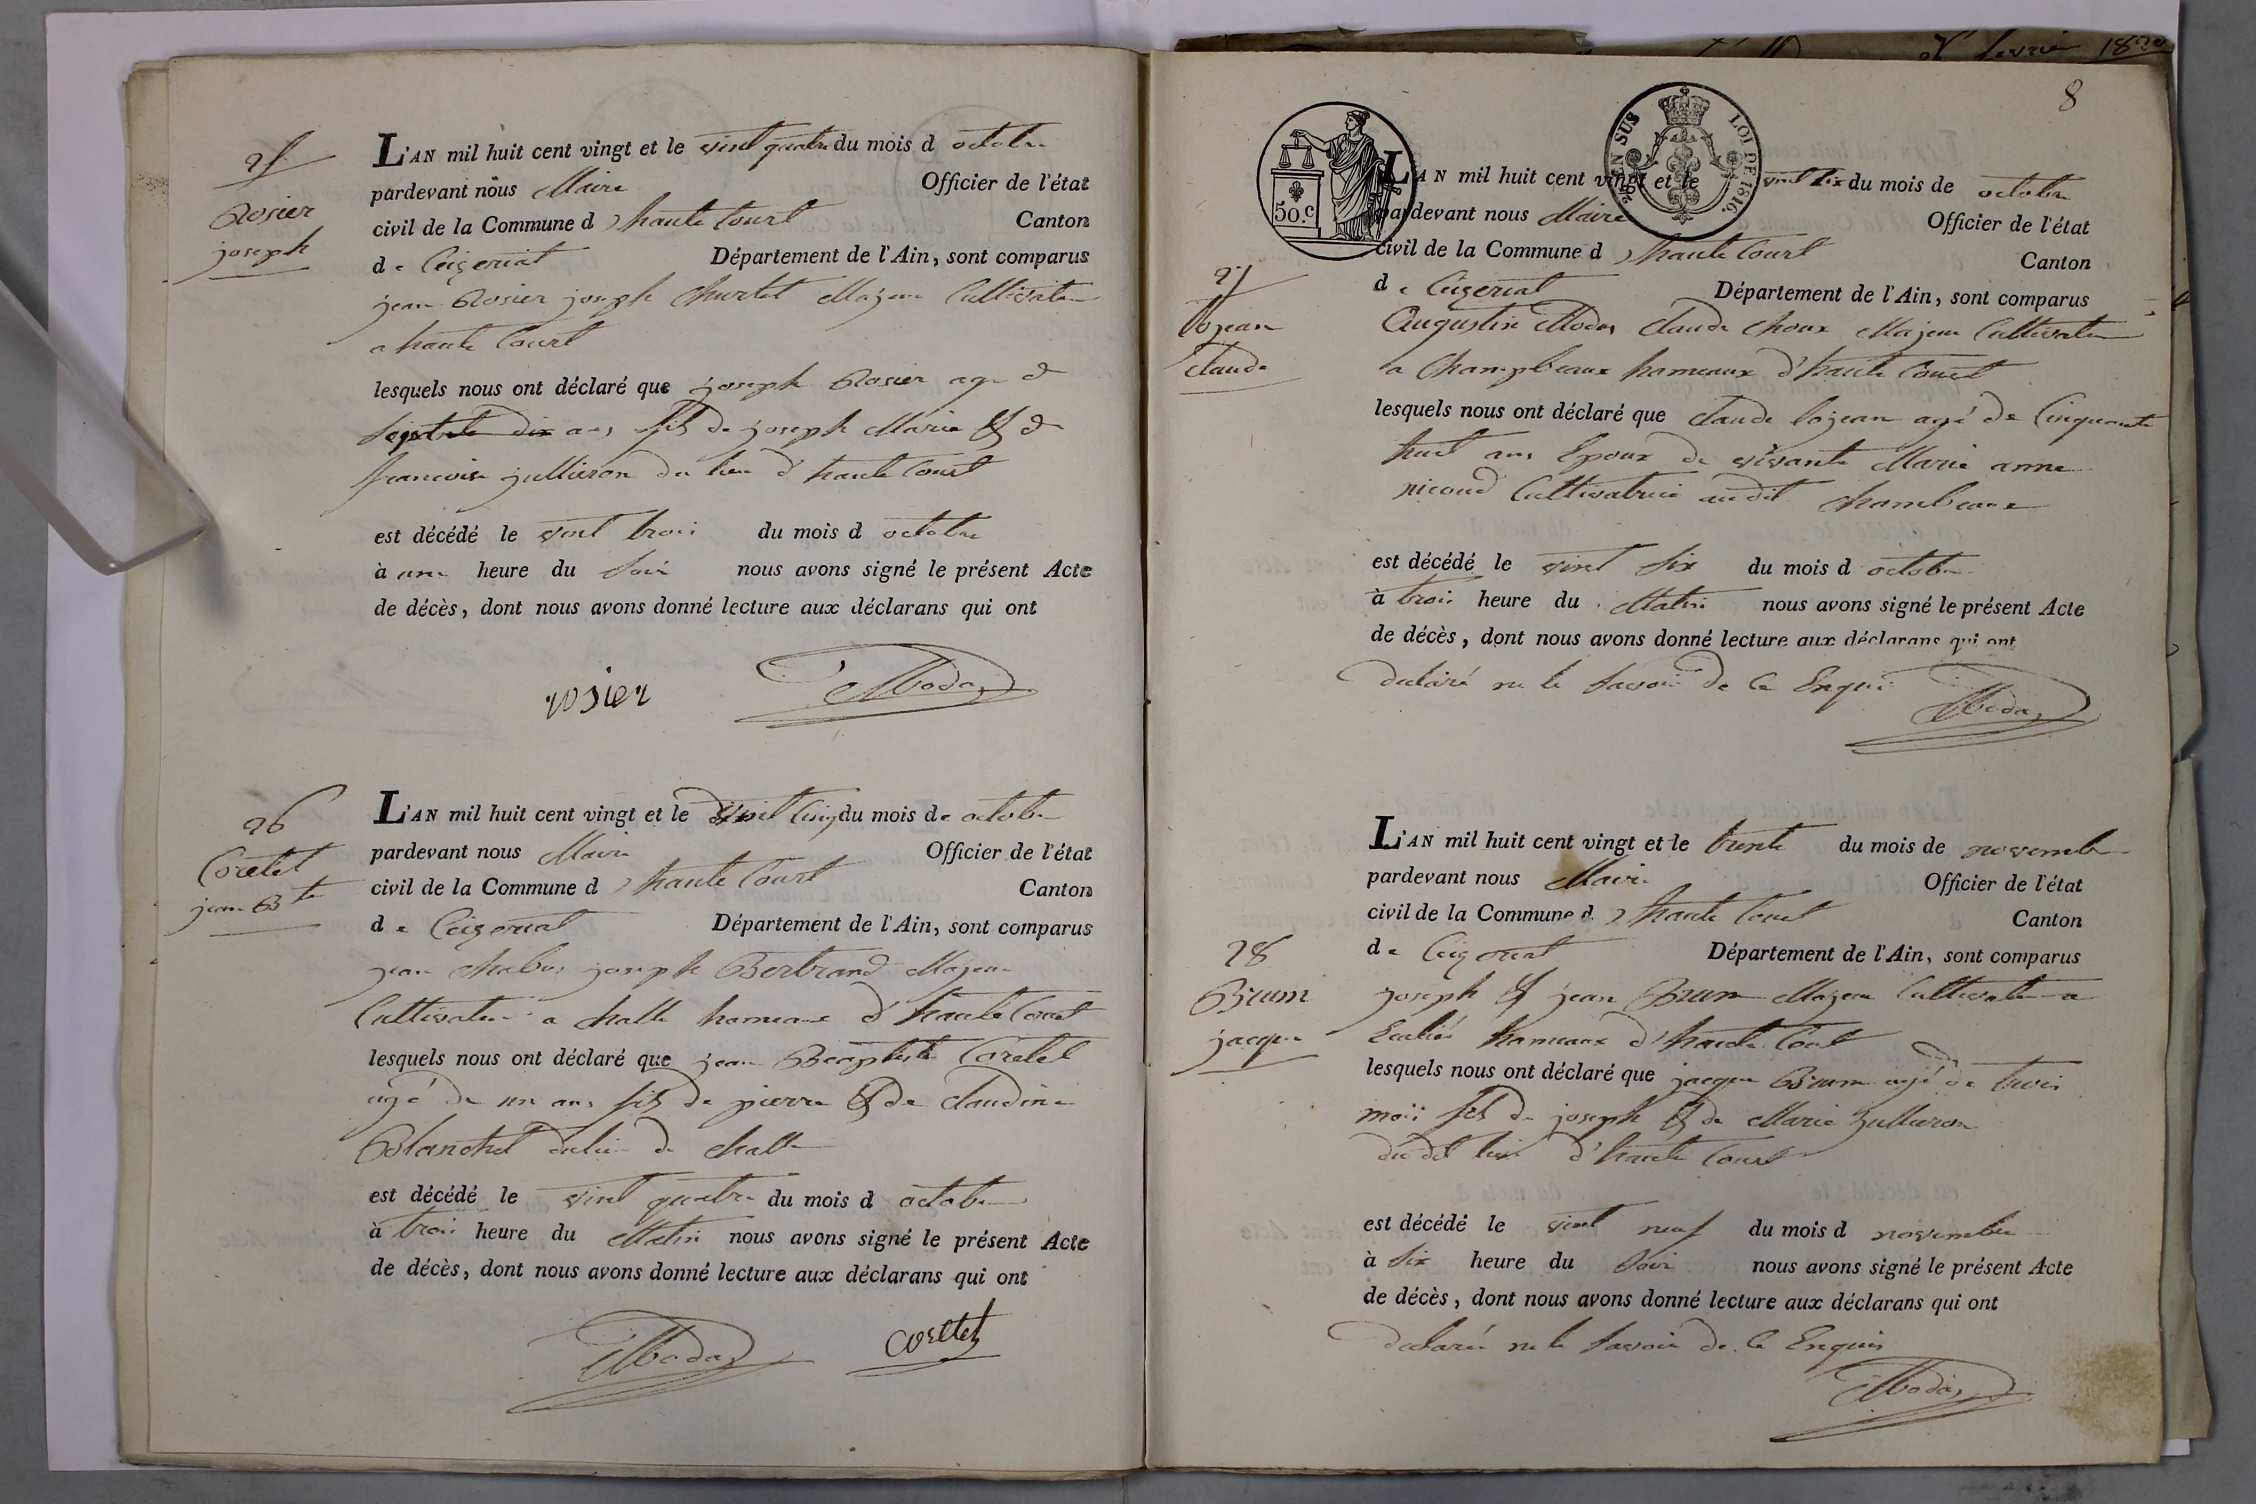 25
Rosier
joseph
L'AN mil huit cent vingt et le vint quatre du mois d octobre
pardevant nous Maire Officier de l'état
civil de la Commune d haute Court Canton
de Ceizeriat Département de l'Ain, sont comparus
jean Rosier joseph Churlet Majeur Cultivateur
a haute Court
lesquels nous ont déclaré que joseph Rosier age de
Septente dix ans fils de joseph Marie & de
francoise jullieron du lieu d'haute Court
est décédé le vint trois du mois d octobre
à une heure du Soir nous avons signé le présent Acte
de décès, dont nous avons donné lecture aux déclarans qui ont
rosier Modas
26
Coretet
jean Bte
L'AN mil huit cent vingt et le vint cinq du mois de octobre
pardevant nous Maire Officier de l'état
civil de la Commune d haute Court Canton
de Ceizeriat Département de l'Ain, sont comparus
jean Chabus joseph Bertrand Majeur
Cultivateur a Challe hameaux d'haute Court
lesquels nous ont déclaré que jean Beaptiste Coretet
agé de un ans fils de pierre & de Claudine
Blanchet du lieu de Challe
est décédé le vint quatre du mois d octobre
à trois heure du Matin nous avons signé le présent Acte
de décès, dont nous avons donné lecture aux déclarans qui ont
Modas
8
50.C
EN SUS
LOI DE 1816.
27
Claude
L'AN mil huit cent vingt et le vint six du mois de octobre
pardevant nous Maire Officier de l'état
civil de la Commune d haute Court Canton
de Ceizeriat Département de l'Ain, sont comparus
Augustin Modas Claude Choux Majeur Cultivateur
a Champbeaux hameaux d'haute Court
lesquels nous ont déclaré que Claude agé de Cinquante
huit ans Epoux de vivante Marie anne
nicoud Cultivatrice audit Chambeaux
est décédé le vint six du mois d octobre
à trois heure du Matin nous avons signé le présent Acte
de décès, dont nous avons donné lecture aux déclarans qui ont
declaré ne le Savoir de Ce Enquis
Modas
28
Brum
jacque
L'AN mil huit cent vingt et le trente du mois de novembre
pardevant nous Maire Officier de l'état
civil de la Commune d haute Court Canton
de Ceizeriat Département de l'Ain, sont comparus
joseph & jean Brum Majeur Cultivateur a
hameaux d'haute Court
lesquels nous ont déclaré que jacque Brum agé de trois
mois fils de joseph & de Marie Jullieron
du dit lieu d'haute Court
est décédé le vint neuf du mois d novembre
à Six heure du Soir nous avons signé le présent Acte
de décès, dont nous avons donné lecture aux déclarans qui ont
declaré ne le Savoir de Ce Enquis
Modas